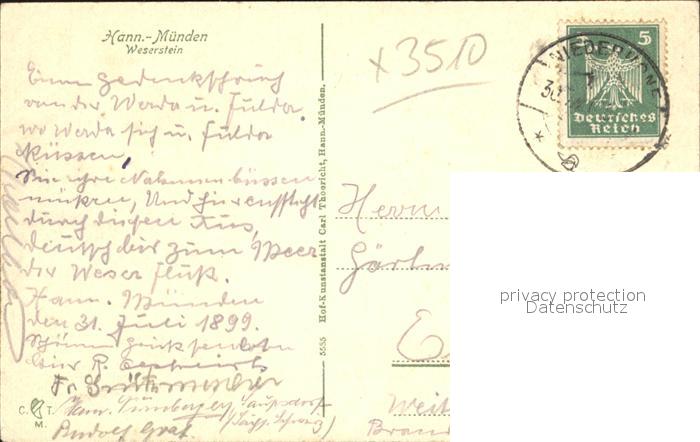 Hann.-Münden
Weserstein
x 3510
5
NIEDERURNE
30
Deutsches
Reich
Einen Gedenkspruch
von der Werda u. Fulda
wo Werda sich u. Fulda
küssen,
Sie ihre Nahmen büssen
müssen, Und hier entsteht
durch diesen Kus,
deutsch bis zum Meer
der Weser Fluß.
Hann. Münden
den 31. Juli 1899.
R.
Fr.
Rudolf Graf.
C. T.
M.
5555 Hof-Kunstanstalt Carl Thoericht, Hann.-Münden.
Herrn
Gärtn
E
Weit
Bran
privacy protection
Datenschutz